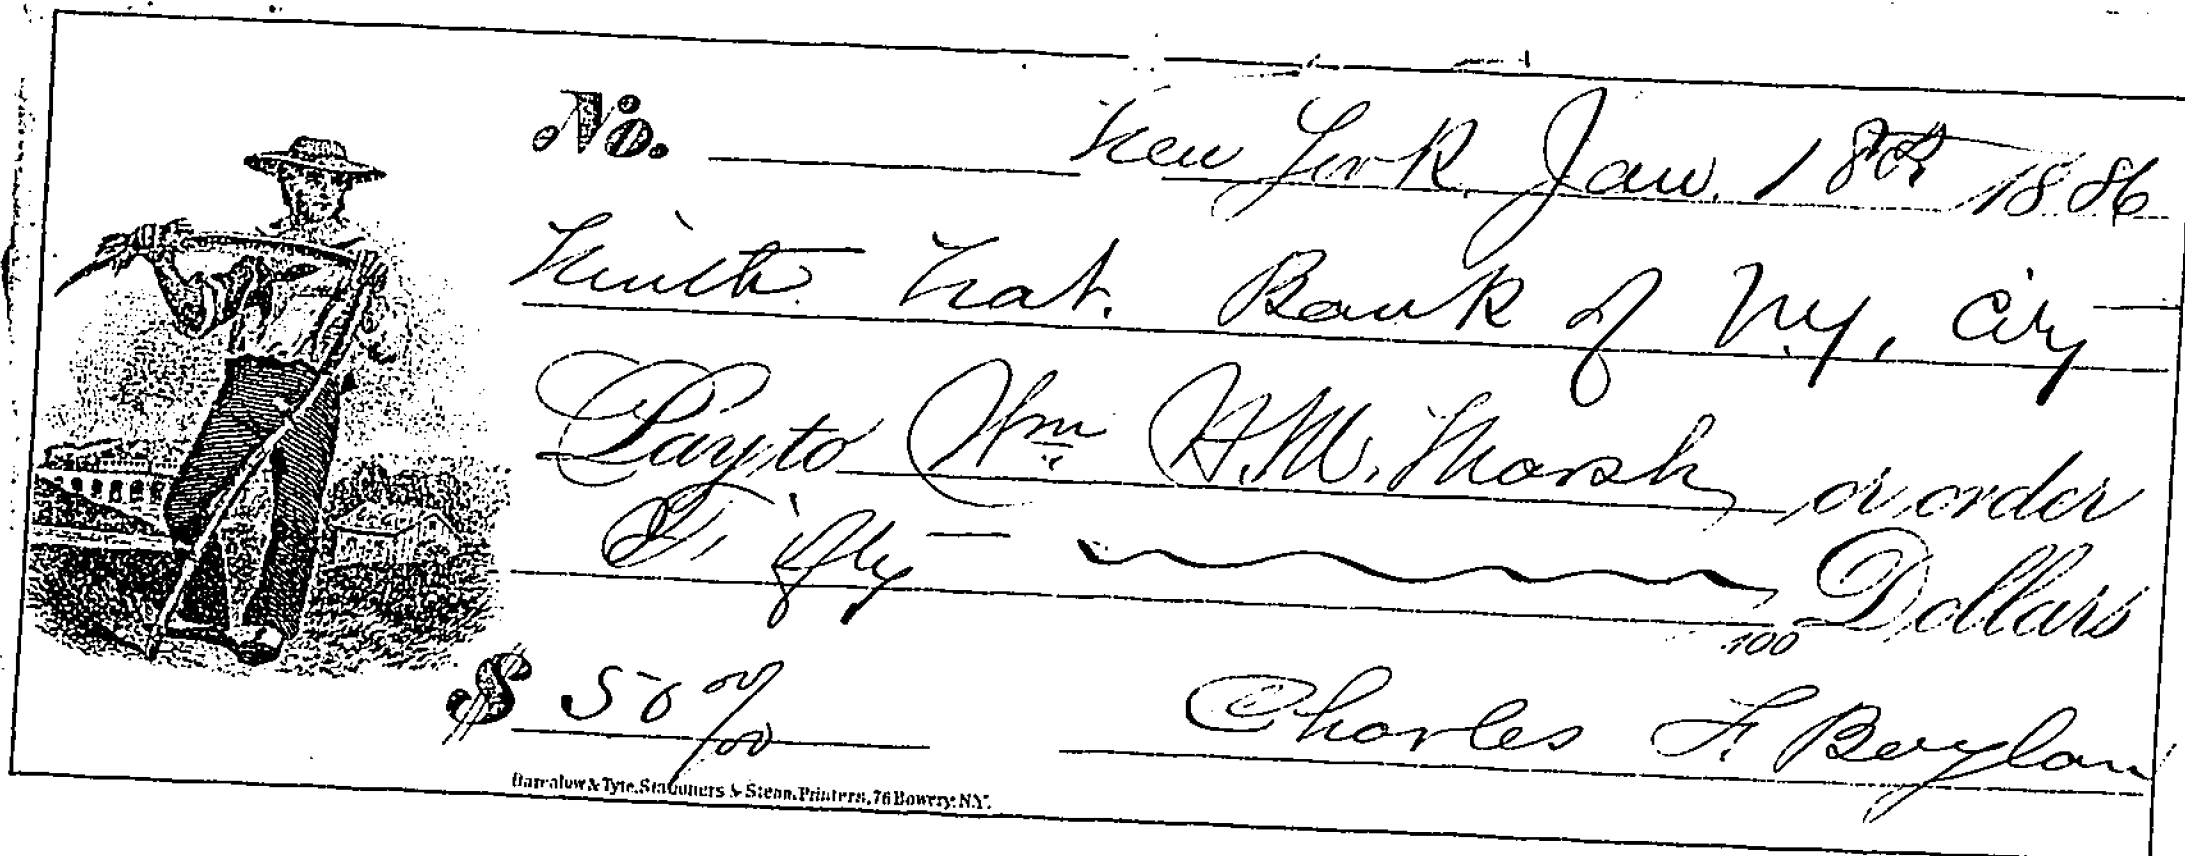 No. New York, Jan. 18th 1886
Ninth Nat. Bank of N.Y. City
Pay to Wm H. M. Marsh or order
Fifty Dollars
100
$ 50 00/00 Charles F. Boylan
& Tyte, Stationers & Steam Printers, 76 Bowery, N.Y.